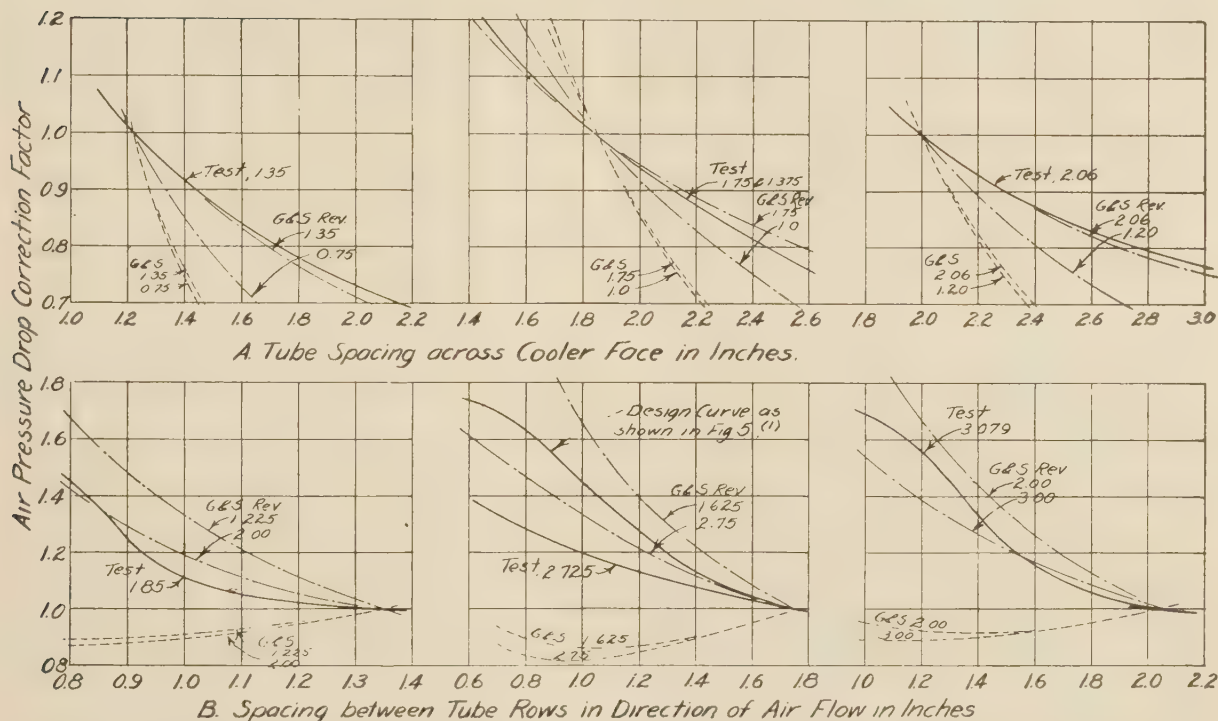 Air Pressure Drop Correction Factor
1.2
1.1
1.0
0.9
0.8
0.7
Test, 1.35
G&S Rev.
1.35
0.75
G&S
1.35
0.75
1.0 1.2 1.4 1.6 1.8 2.0 2.2
Test
1.75&1.375
G&S Rev.
1.75
1.0
G&S
1.75
1.0
1.4 1.6 1.8 2.0 2.2 2.4 2.6
Test, 2.06
G&S Rev.
2.06
1.20
G&S
2.06
1.20
1.8 2.0 2.2 2.4 2.6 2.8 3.0
A. Tube Spacing across Cooler Face in Inches.
1.8
1.6
1.4
1.2
1.0
0.8
G&S Rev
1.225
2.00
Test
1.85
G&S
1.225
2.00
0.8 0.9 1.0 1.1 1.2 1.3 1.4
Design Curve as
shown in Fig 5, (1)
G&S Rev
1.625
2.75
Test, 2.725
G&S 1.625
2.75
0.6 0.8 1.0 1.2 1.4 1.6 1.8
Test
3.079
G&S Rev
2.00
3.00
G&S 2.00
3.00
1.0 1.2 1.4 1.6 1.8 2.0 2.2
B. Spacing between Tube Rows in Direction of Air Flow in Inches